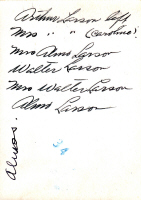 Arthur Larson left
Mrs " " (Caroline)
Mrs Almo Larson
Walter Larson
Mrs Walter Larson
Almo Larson